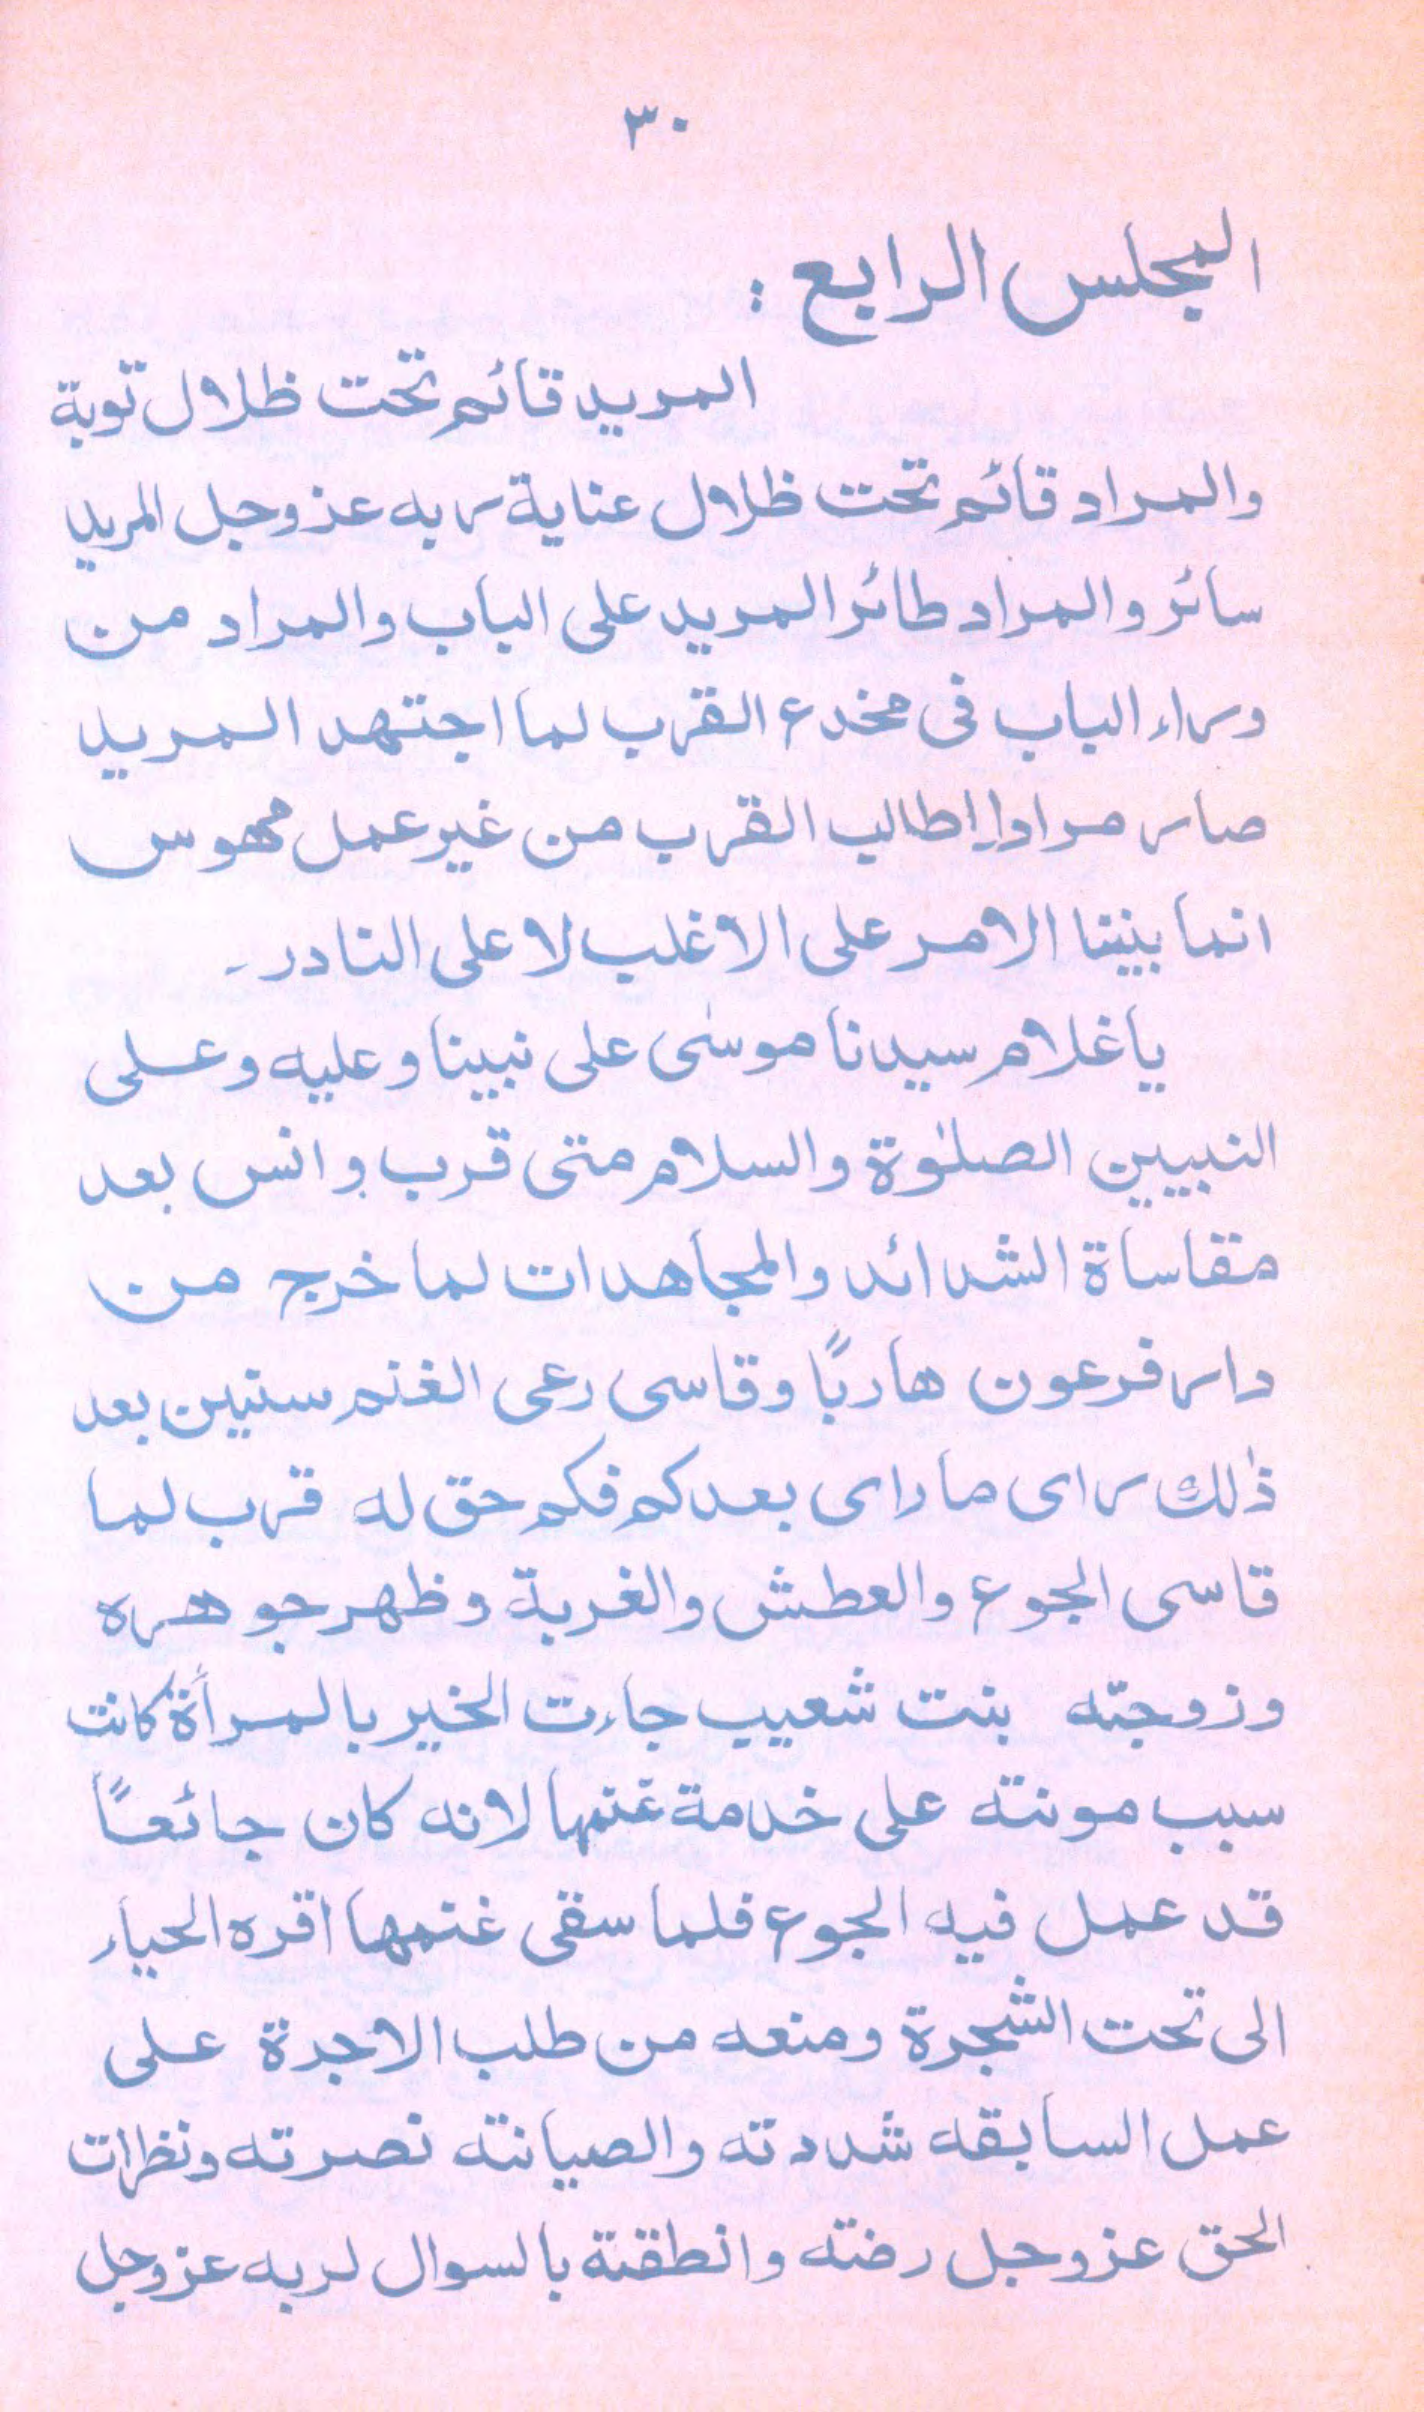 ٣٠
المجلس الرابع :
المريد قائم تحت ظلال توبة
والمراد قائم تحت ظلال عناية ربه عزوجل المريد
سائر والمراد طائر المريد على الباب والمراد من
وراء الباب فى مخدع القرب لما اجتهد المريد
صار مرادا طالب القرب من غير عمل مهوس
انما بنينا الامر على الاغلب لا على النادر۔
ياغلام سيدنا موسٰى على نبينا وعليه وعلى
النبيين الصلٰوة والسلام متى قرب وانس بعد
مقاساة الشدائد والمجاهدات لما خرج من
دار فرعون هاربًا وقاسى رعى الغنم سنين بعد
ذٰلك راى ما راى بعدكم فكم حق له قرب لما
قاسى الجوع والعطش والغربة وظهر جوهره
وزوجته بنت شعيب جاءت الخير بالمرأة كانت
سبب مونته على خدمة غنمها لانه كان جائعًا
قد عمل فيه الجوع فلما سقى غنمها اقره الحياء
الى تحت الشجرة ومنعه من طلب الاجرة على
عمل السابقه شددته والصيانته نصرته ونظرات
الحق عزوجل رضته وانطقنة بالسوال لربه عزوجل